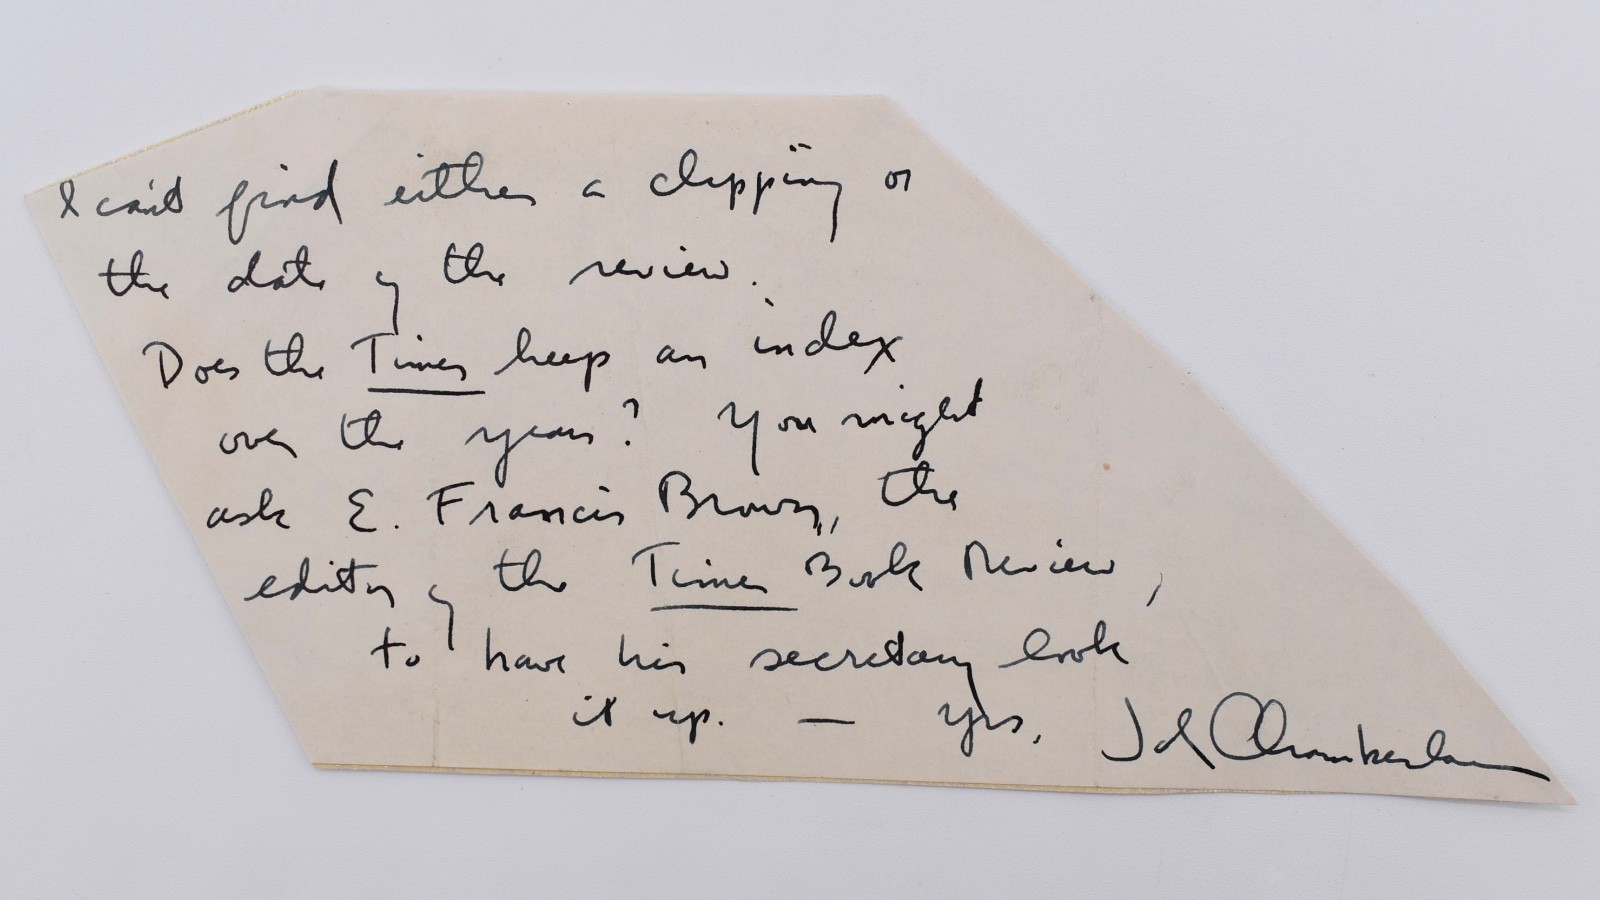 I can't find either a clipping or
the date of the review.
Does the Times keep an index
over the years? You might
ask E. Francis Brown, the
editor of the Times Book Review,
to have his secretary look
it up. — Yrs, John Chamberlain